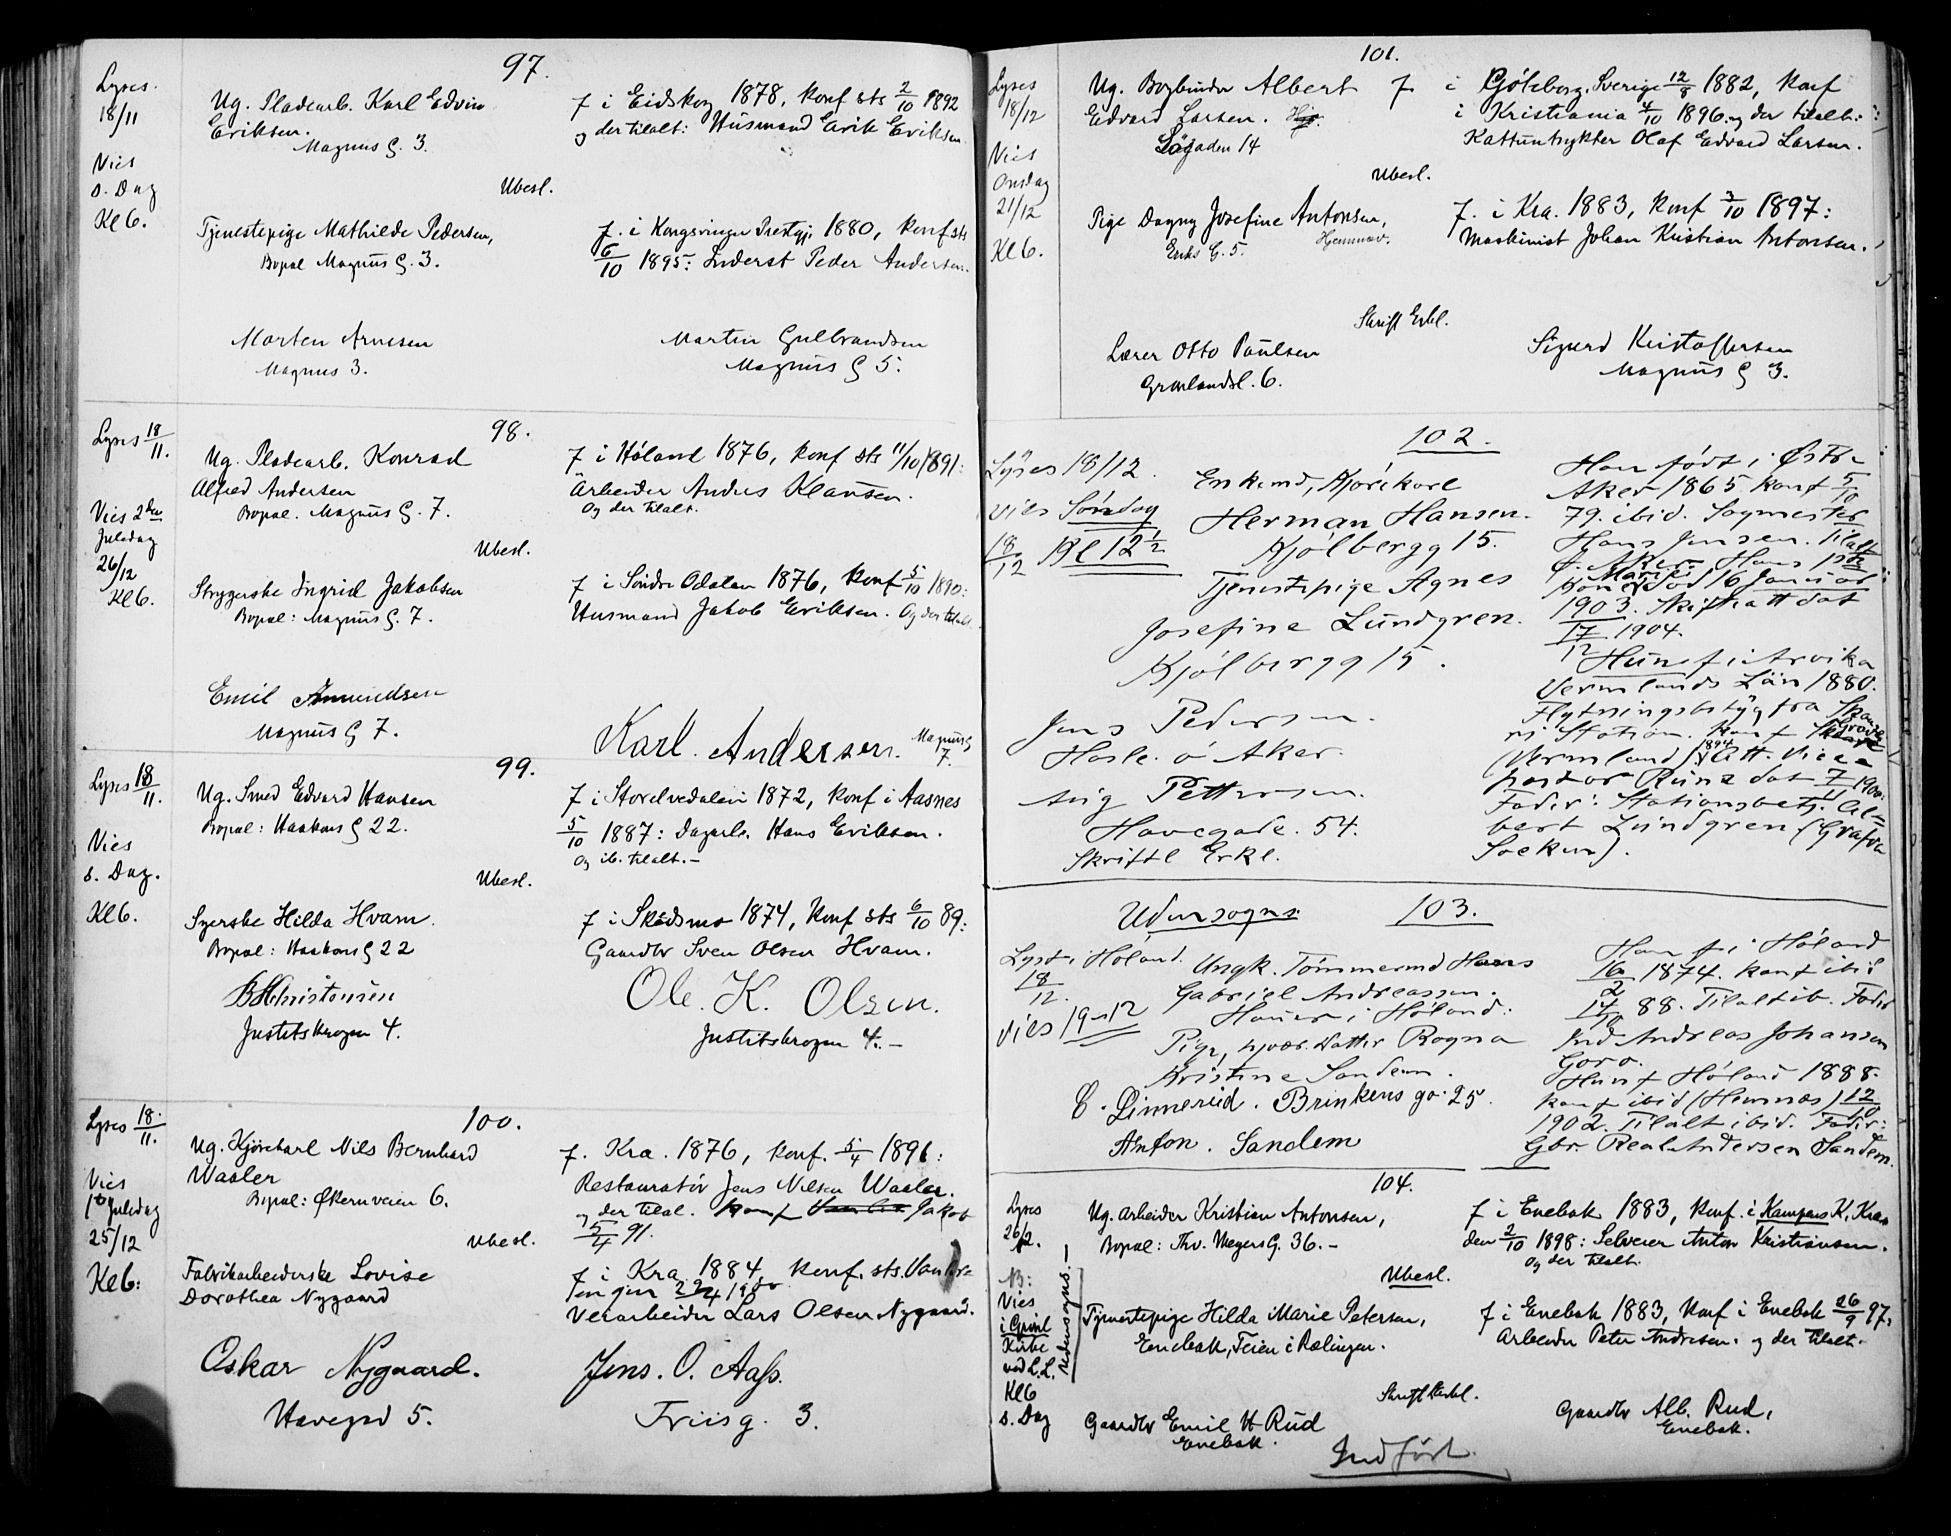 97.
Lyses.
18/11
Vies
s. Dag
Kl 6.
Ug. Pladearb. Karl Edvin
Eriksen.
Magnus G. 3.
f i Eidskog 1878, konf sts 2/10 1892
og der tilalt: Husmand Erik Eriksen
Ubesl.
Tjenestepige Mathilde Pedersen,
Bopæl Magnus G. 3.
f. i Kongsvinger Prestgj. 1880, konf sts
6/10 1895: Inderst Peder Andersen.
Morten Arnesen
Magnus 3.
Martin Gulbrandsen
Magnus G 5.
98.
Lyses 18/11.
Vies 2den
Juledag
26/12
Kl 6.
Ug. Pladearb. Konrad
Alfred Andersen
Bopæl. Magnus G. 7.
f i Høland 1876, konf sts 11/10 1891:
Arbeider Anders Klausen.
Og der tilalt.
Ubesl.
Strygerske Ingrid Jakobsen
Bopæl: Magnus G. 7.
f i Søndre Odalen 1876, konf 5/10 1890:
Husmand Jakob Eriksen. Og der tilalt
Emil Amundsen
Magnus G 7.
Karl. Andersen. Magnus G
7.
99.
Lyses 18/11.
Vies
s. Dag.
Kl 6.
Ug. Smed Edvard Hansen
Bopæl: Haakons G 22.
f i Storelvedalen 1872, konf i Aasnes
5/10 1887: Dagarb. Hans Eriksen.
Og ib. tilalt. –
Ubesl.
Syerske Hilda Hvam.
Bopæl: Haakons G 22
f i Skedsmo 1874, konf sts 6/10 89:
Gaardbr Sven Olsen Hvam.
B Christensen
Justitskrogen 4.
Ole. K. Olsen.
Justitskrogen 4. –
100.
Lyses 18/11.
Vies
1ste Juledag
25/12
Kl 6:
Ug. Kjørekarl Nils Bernhard
Waaler
Bopæl: Økernveien 6.
f. Kra. 1876, konf. 5/4 1891:
Restauratør Jens Nilsen Waaler.
og der tilal. konf Jakob
5/4 91.
Ubesl.
Fabrikarbeiderske Lovise
Dorothea Nygaard
f i Kra 1884, konf. sts.
1900
Verarbeider Lars Olsen Nygaard.
Oskar Nygaard.
Havegad 5.
Jens. O. Aass.
Friisg. 3.
101.
Lyses
18/12
Vies
Onsdag
21/12
Kl 6.
Ug. Bogbinder Albert
Edvard Larsen.
14
f i Gøteborg. Sverige 12/8 1882, konf
i Kristiania 4/10 1896. og der tilalt:
Kattuntrykker Olaf Edvard Larsen.
Ubesl.
Pige Dagny Josefine Antonsen,
Eriks G. 5.
f. i Kra. 1883, konf 3/10 1897:
Maskinist Johan Kristian Antonsen.
Skriftl Erkl.
Lærer Otto Paulsen
Grønlandsl. 6.
Sigurd Kristoffersen
Magnus G 3.
102.
Lyses 18/12.
vies Søndag
18/12 Kl 12 1/2
Enkemd, Kjørekarl
Herman Hansen.
Kjølbergg 15.
Tjenestepige Agnes
Josefine Lundgren.
Kjølbergg 15.
Han født i Østre
Aker 1865 konf 5/10
79. ibid. Sagmester
Hans Jensen. Tilalt
Ø. Aker. Hans
Kone Marie død 16 Januar
1903. Skifteatt dat
17/12 1904.
Hun f i Arvika
Vermlands Län 1880.
Flytningsbetyg fra
Station. Konf
(Vermland) 1894 Att. Vice
pastor Runz dat 7/11 1900:
Fader: Stationsbetj. Al-
bert Lundgren (Grafva
Socken).
Jens Pedersen.
Hasle. Ø Aker.
Aug Pettersen.
Havegade. 54.
Skriftl Erkl.
Udensogns: 103.
Lyst i Høland.
18/12.
Vies 19-12
Ungk. Tømmermd Hans
Gabriel Andreassen.
i Høland:
Pige, hjvær. Datter Ragna
Kristine Sandem.
Han f i Høland
16/2 1874. konf ibid
14/10 88. Tilalt ib. Fader
Ind Andreas Johansen
Goro.
Hun f Høland 1888.
konf ibid (Hemnæs) 12/10
1902. Tilalt ibid. Fader:
Gbr. Real Andersen Sandem.
C. Linnerud. Brinkens ga: 25.
Anton. Sandem
104.
Lyses
26/12.
NB:
Vies
i Grønl
Kirke
ved L. L.
Kl 6
s. Dag
Udensogns!
Ug. arbeider Kristian Antonsen,
Bopæl: Thv. Meyers G. 36. –
f i Enebak 1883, konf. i Kampens K, Kra
den 2/10 1898: Selveier Anton Kristiansen.
Og der tilalt.
Ubesl.
Tjenestepige Hilda Marie Petersen,
Enebak, Feien i Rælingen.
f i Enebak 1883, konf i Enebak 26/9 97.
Arbeider Peter Andresen. og der tilalt.
Skriftl Erkl.
Gaardbr Emil H Rud
Enebak.
Gaardbr Alb. Rud,
Enebak.
Indført.